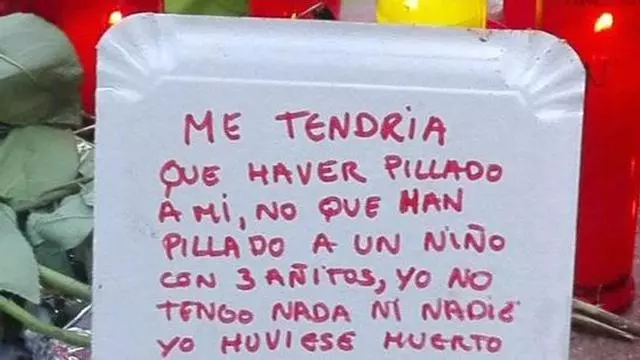 ME TENDRIA
QUE HAVER PILLADO
A MI, NO QUE HAN
PILLADO A UN NIÑO
CON 3 AÑITOS, YO NO
TENGO NADA NI NADIE
YO HUVIESE MUERTO